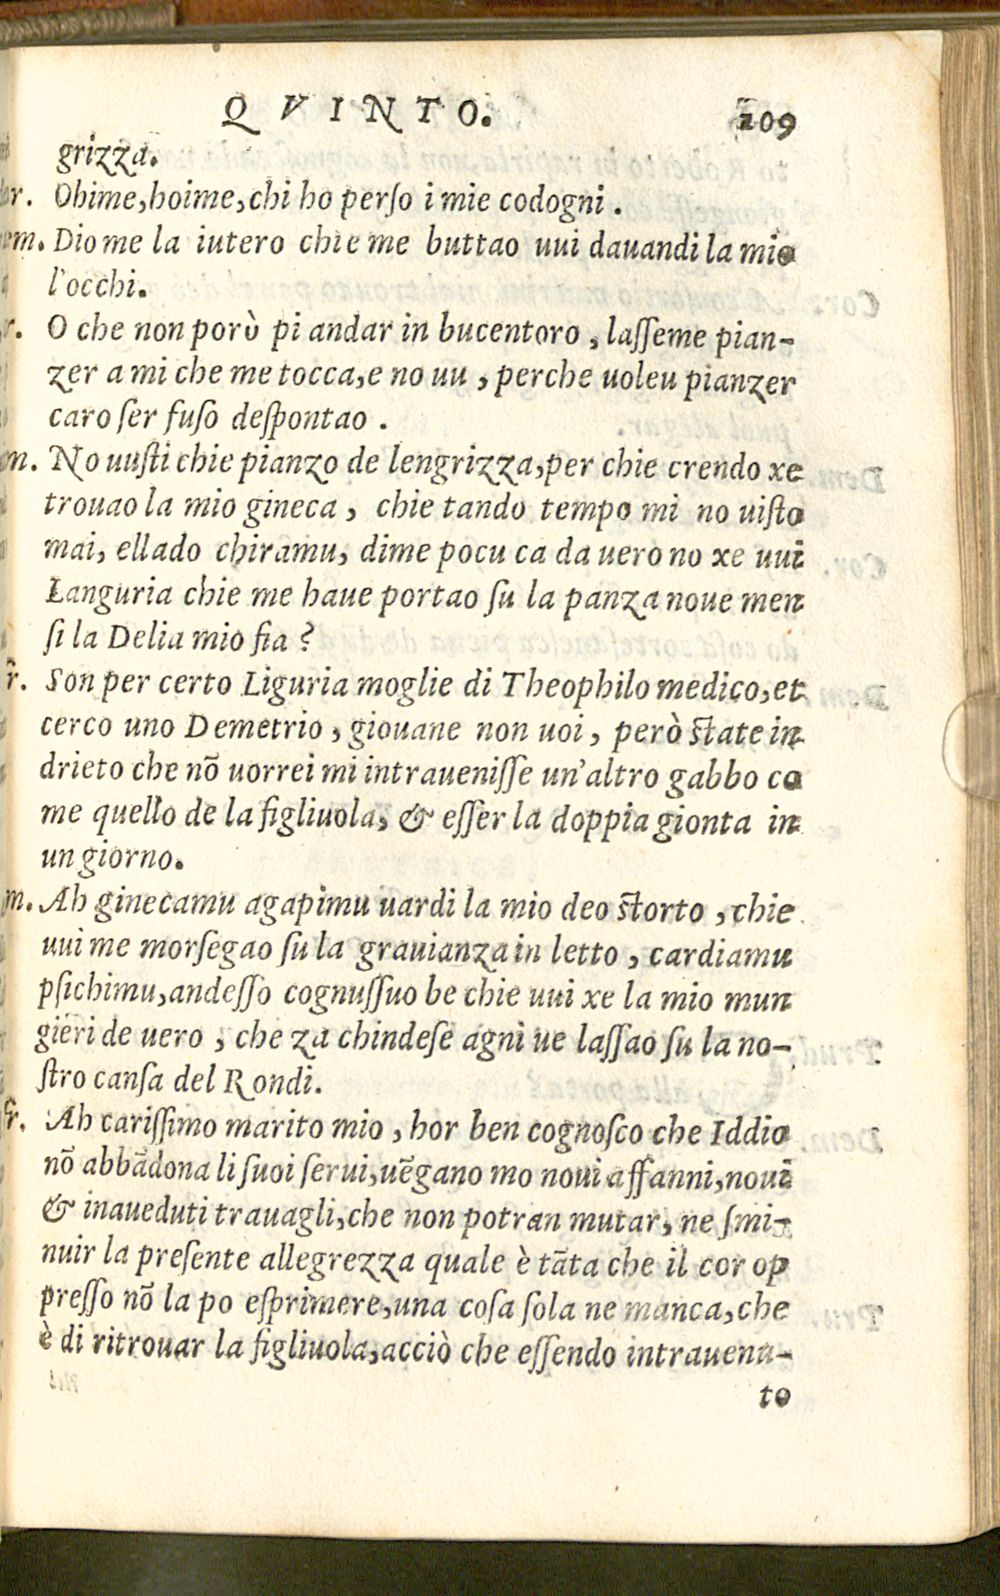 QVINTO. 109
grizza.
r. Ohime, hoime, chi ho perso i mie codogni.
m. Dio me la iutero chie me buttao uui dauandi la mio
l'occhi.
r. O che non porò pi andar in bucentoro, lasseme pian-
zer a mi che me tocca, e no uu, perche uoleu pianzer
caro ser fuso despontao.
m. No uusti chie pianzo de lengrizza, per chie crendo xe
trouao la mio gineca, chie tando tempo mi no uisto
mai, ellado chiramu, dime pocu ca da uero no xe uui
Languria chie me haue portao su la panza noue men
si la Delia mio fia?
r̃. Son per certo Liguria moglie di Theophilo medico, et
cerco uno Demetrio, giouane non uoi, però state in
drieto che nõ uorrei mi intrauenisse un'altro gabbo co
me quello de la figliuola, & esser la doppia gionta in
un giorno.
m. Ah ginecamu agapimu uardi la mio deo storto, chie
uui me morsegao su la grauianza in letto, cardiamu
psichimu, andesso cognussuo be chie uui xe la mio mun
gieri de uero, che za chindese agni ue lassao su la no-
stro cansa del Rondi.
r̃. Ah carissimo marito mio, hor ben cognosco che Iddio
nõ abbãdona li suoi serui, uẽgano mo noui affanni, noui
& inaueduti trauagli, che non potran mutar, ne smi-
nuir la presente allegrezza quale è tãta che il cor op
presso nõ la po esprimere, una cosa sola ne manca, che
è di ritrouar la figliuola, acciò che essendo intrauenu-
to